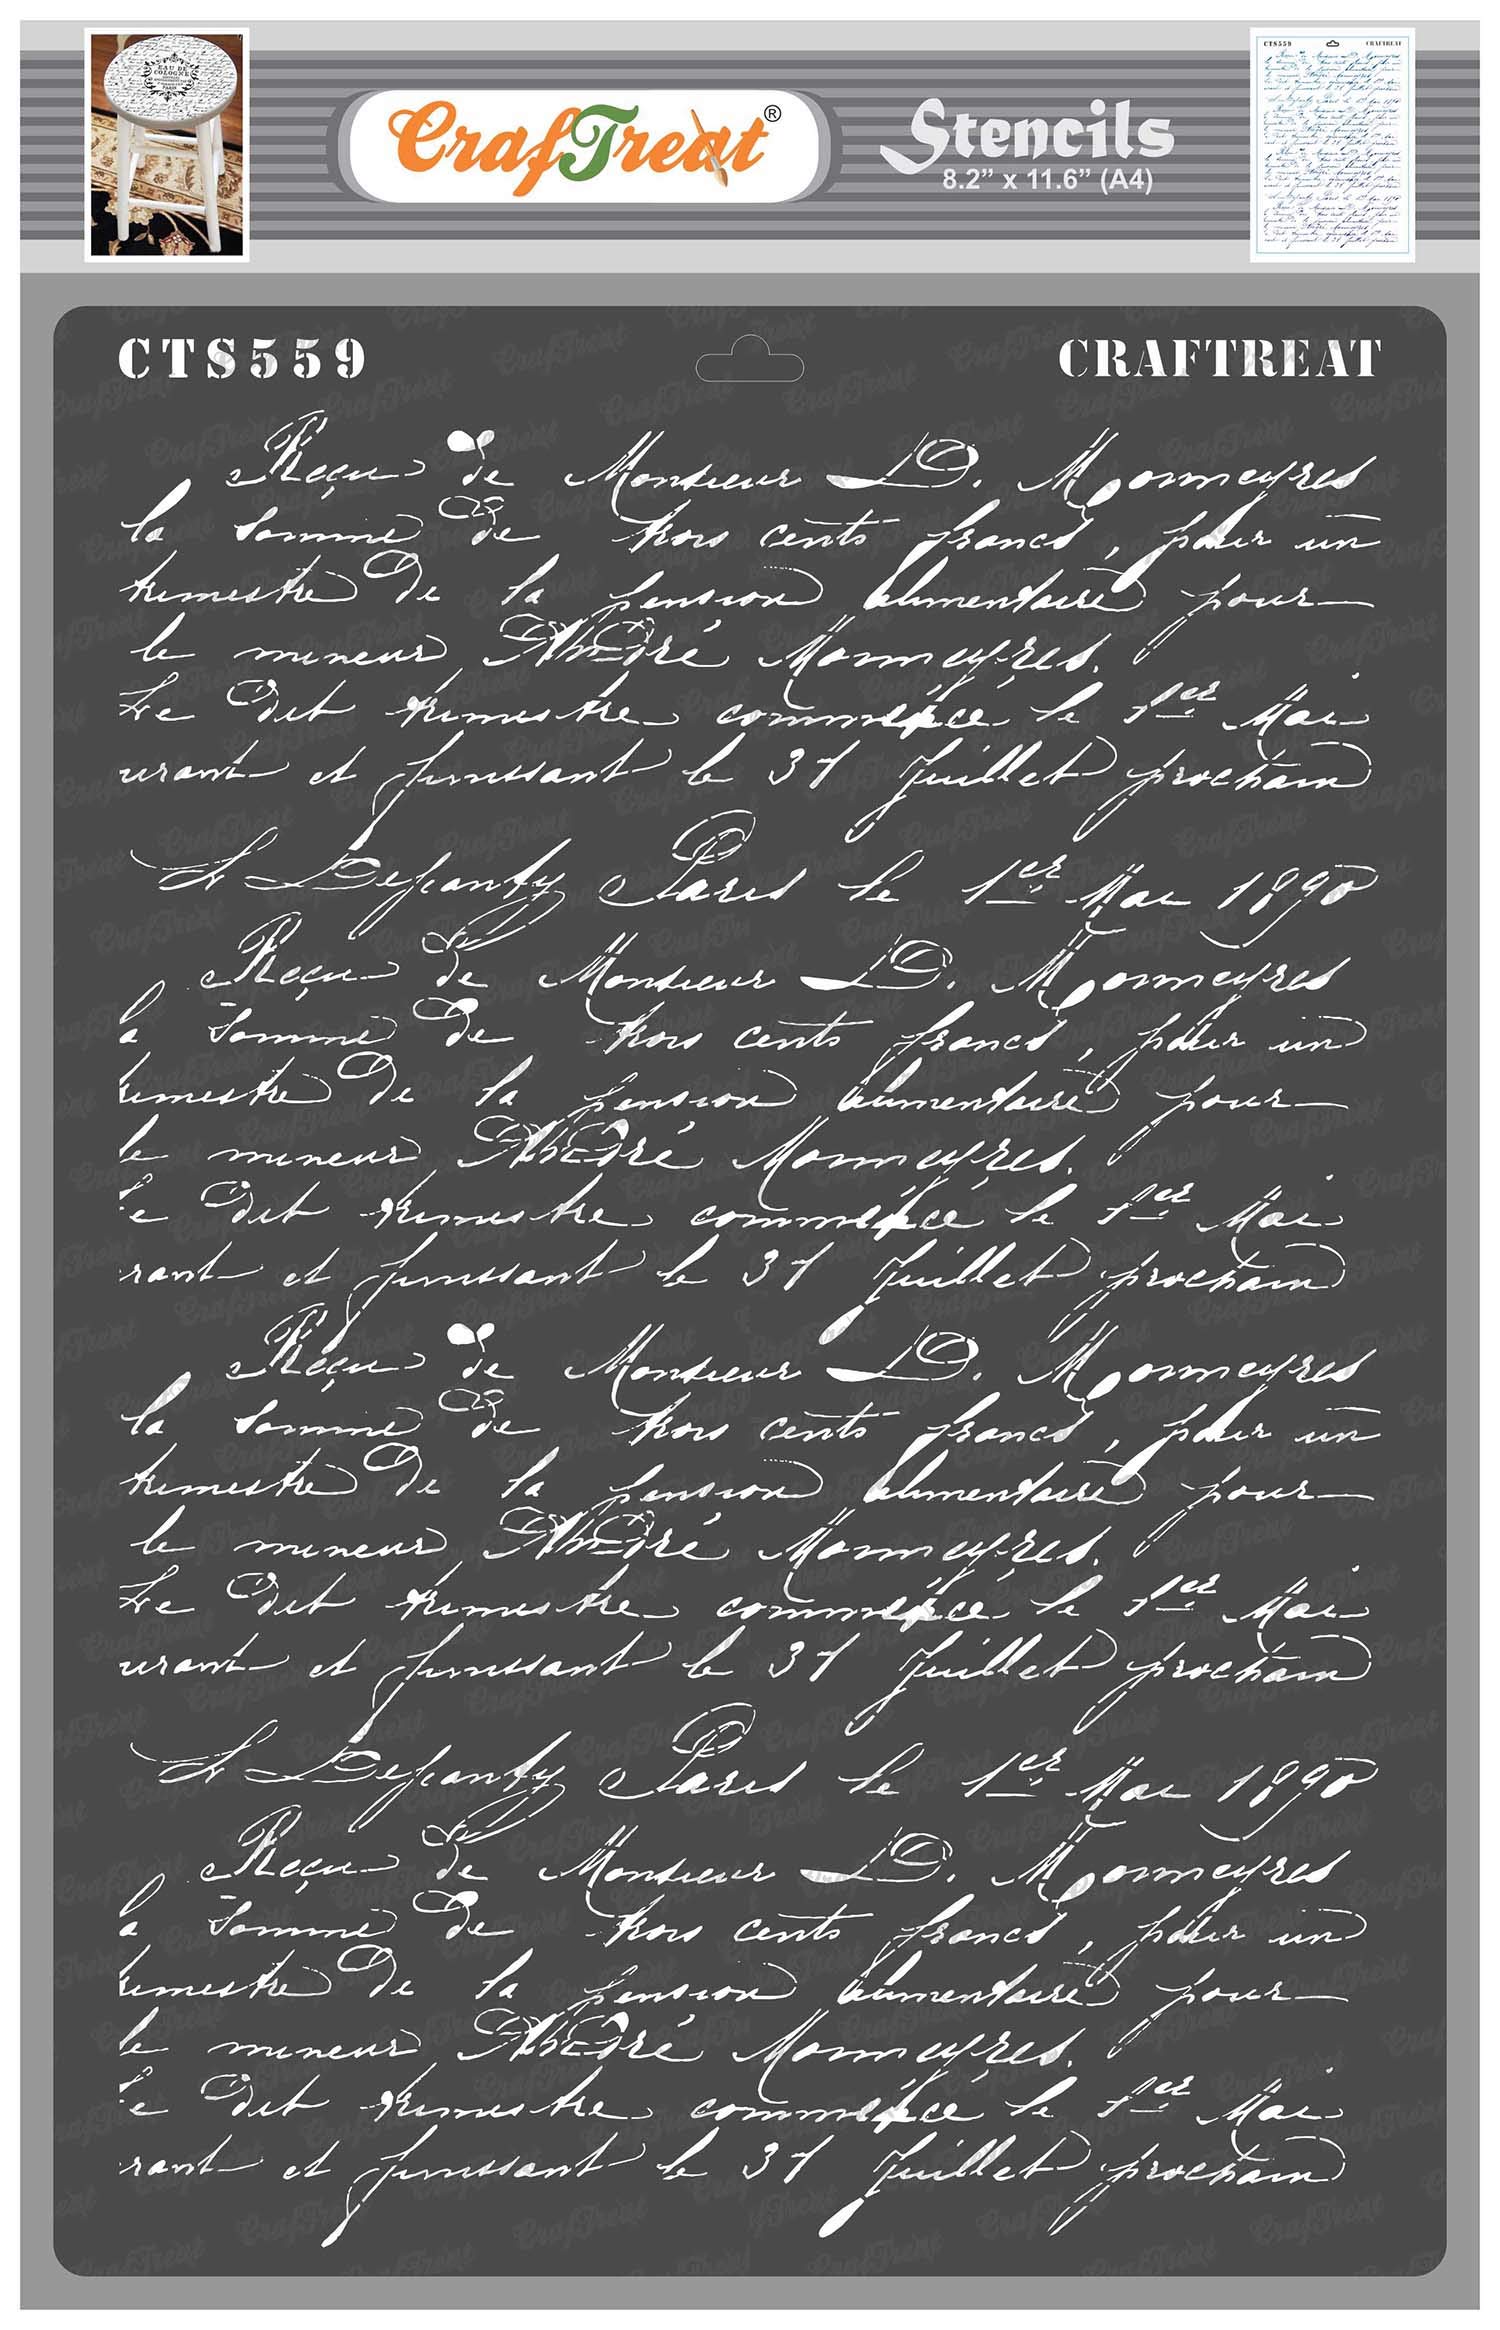 CrafTreat®
Stencils
8.2” x 11.6” (A4)
EAU DE
COLOGNE
PARIS
CTS559 CRAFTREAT
CTS559 CRAFTREAT
Reçu de Monsieur D. Monneyres
la somme de trois cents francs, pour un
trimestre de la pension alimentaire pour
le mineur André Monneyres.
Le dit trimestre commencé le 1er Mai
urant et finissant le 31 Juillet prochain
Paris le 1er Mai 1890
Reçu de Monsieur D. Monneyres
la somme de trois cents francs, pour un
trimestre de la pension alimentaire pour
le mineur André Monneyres.
e dit trimestre commencé le 1er Mai
rant et finissant le 31 Juillet prochain
Reçu de Monsieur D. Monneyres
la somme de trois cents francs, pour un
trimestre de la pension alimentaire pour
le mineur André Monneyres.
Le dit trimestre commencé le 1er Mai
urant et finissant le 31 Juillet prochain
Paris le 1er Mai 1890
Reçu de Monsieur D. Monneyres
la somme de trois cents francs, pour un
trimestre de la pension alimentaire pour
le mineur André Monneyres.
e dit trimestre commencé le 1er Mai
rant et finissant le 31 Juillet prochain